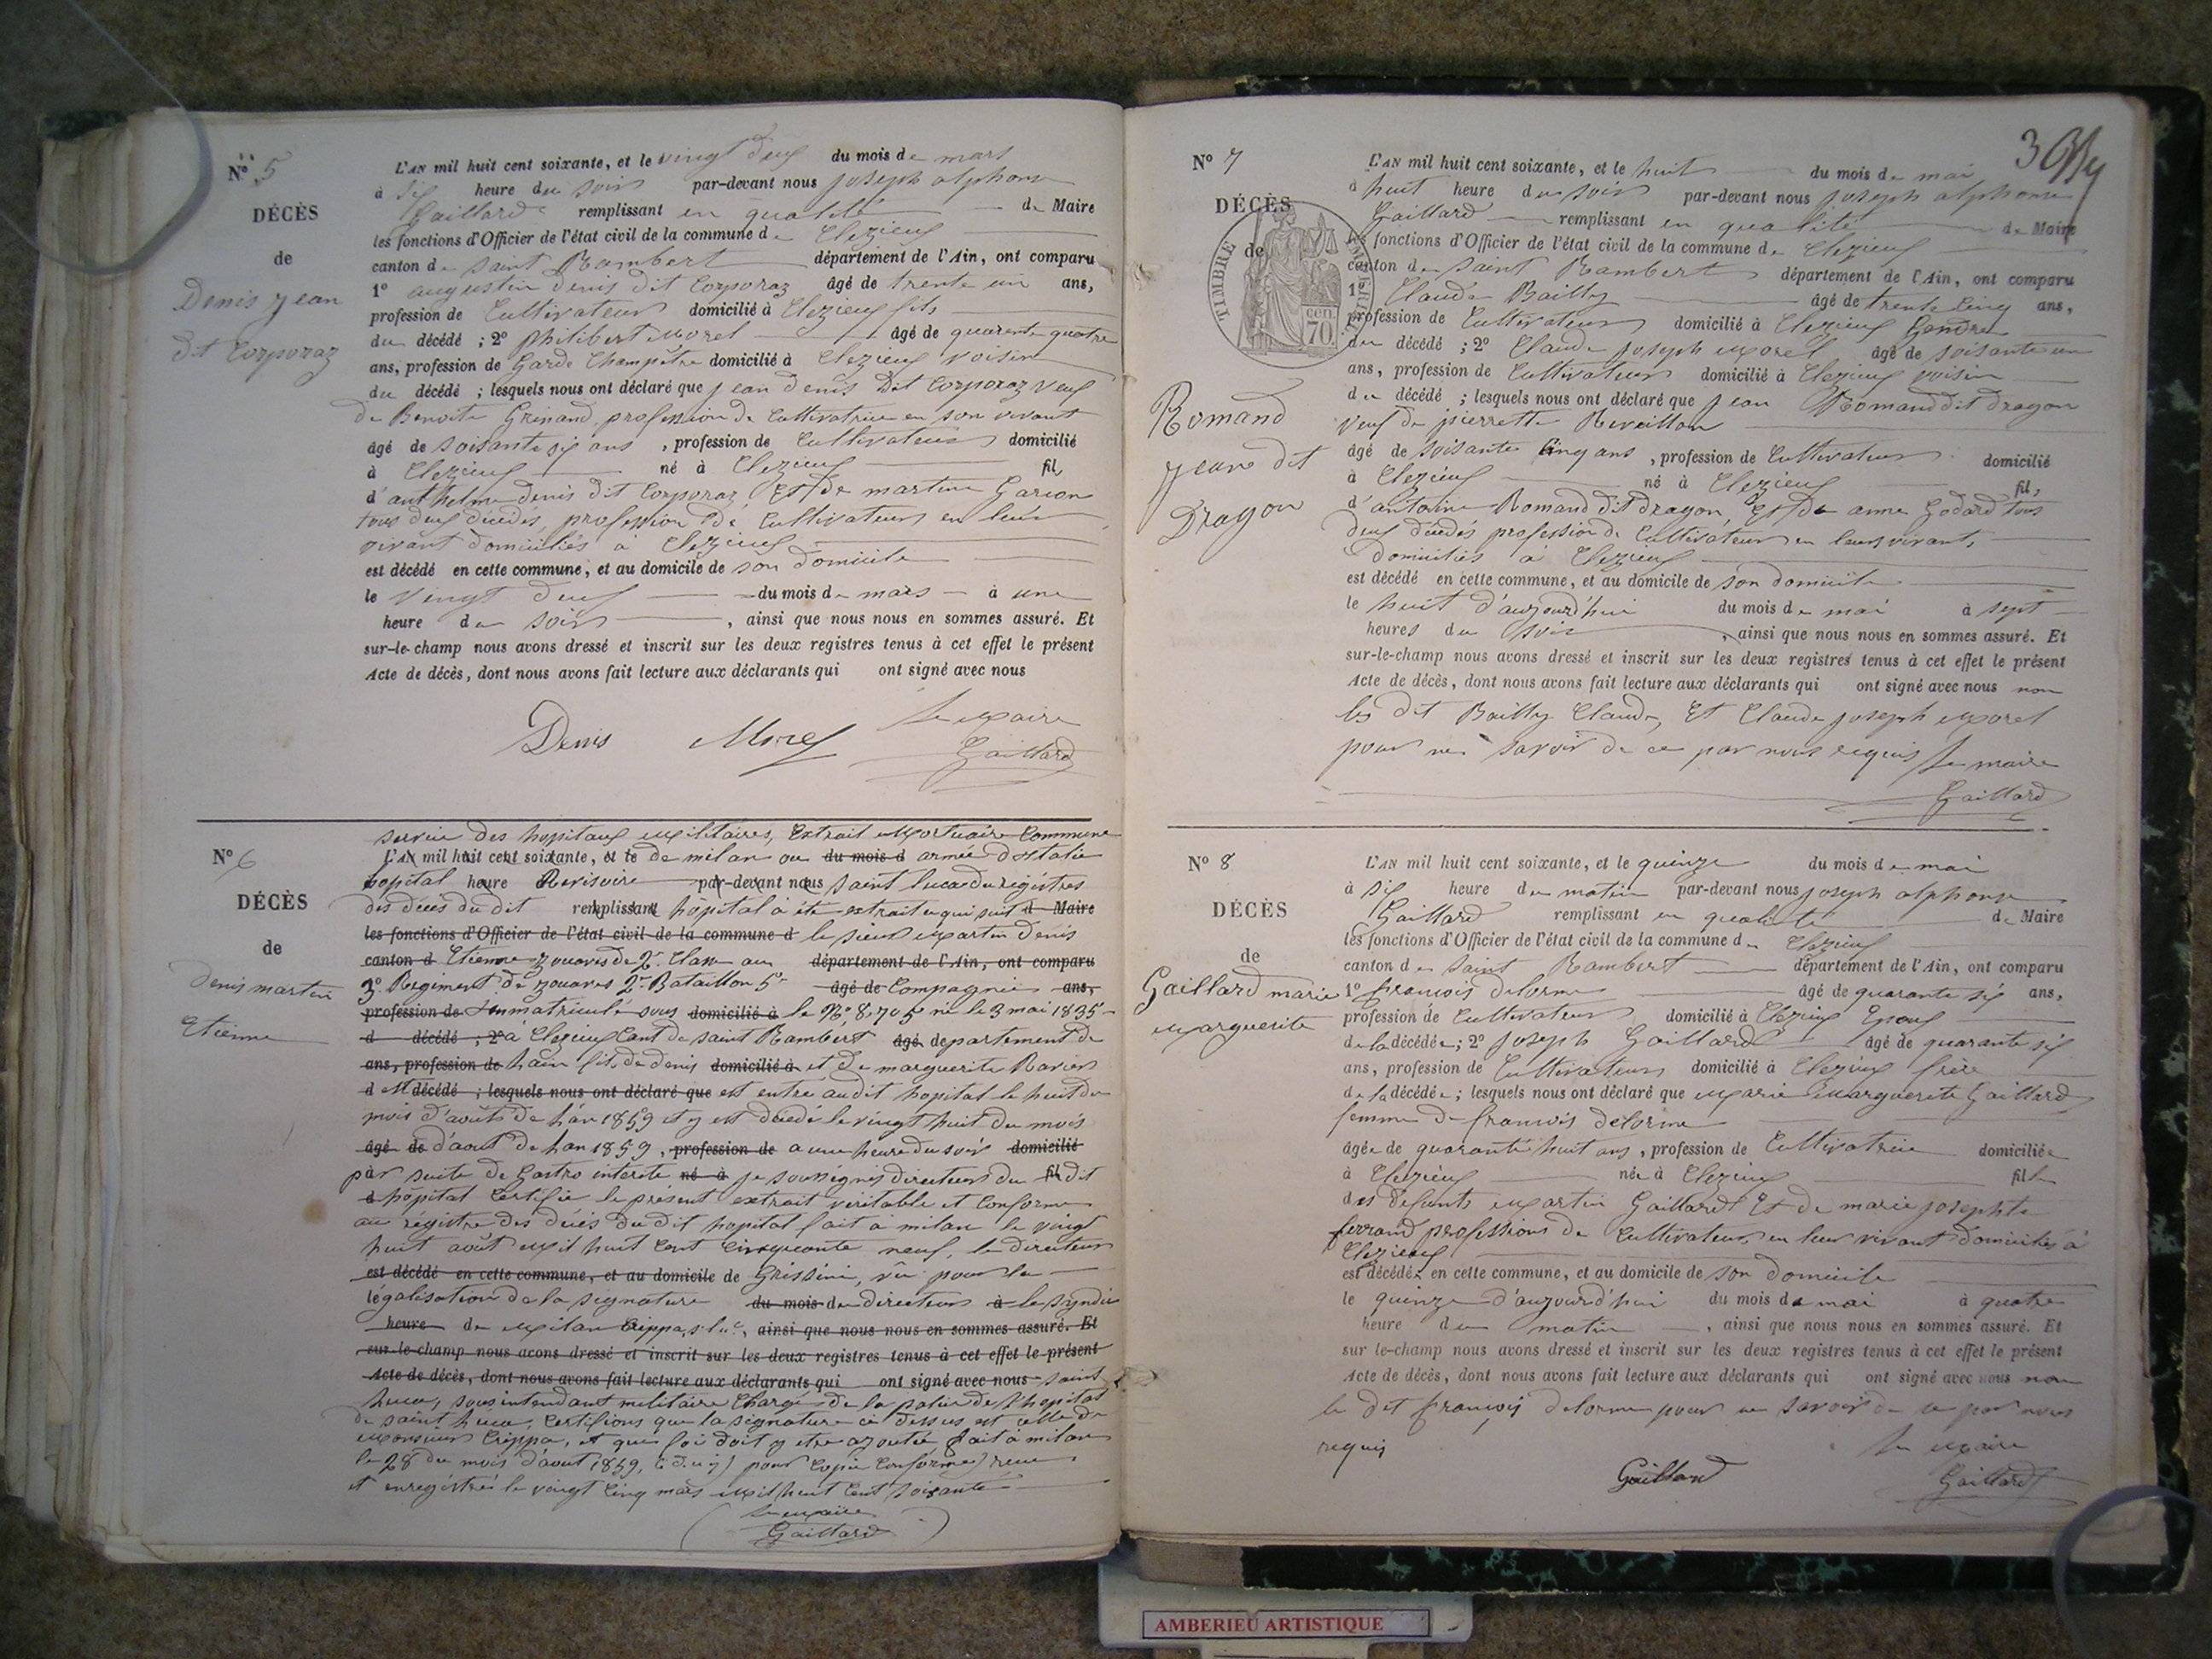 N° 5
DÉCÈS
de
Denis jean
dit Corporaz
L'AN mil huit cent soixante, et le vingt deux du mois de mars
à six heure du soir par-devant nous joseph alphonse
Gaillard remplissant en qualité de Maire
les fonctions d'Officier de l'état civil de la commune de Clezieux
canton de saint Rambert département de l'Ain, ont comparu
1° augustin denis dit Corporaz âgé de trente un ans,
profession de Cultivateur domicilié à Clezieux fils
du décédé ; 2° philibert morel âgé de quarente quatre
ans, profession de Garde Champêtre domicilié à Clezieux voisin
du décédé ; lesquels nous ont déclaré que jean denis dit Corporaz veuf
de Benoite Grinand, profession de Cultivatrice en son vivant
âgé de soisante six ans , profession de Cultivateur domicilié
à Clezieux né à Clezieux fils
d'anthelme denis dit Corporaz et de martine Garion
tous deux décédés, profession de Cultivateurs en leur
vivant domiciliés à Clezieux
est décédé en cette commune, et au domicile de son domicile
le vingt deux du mois de mars à une
heure du soir , ainsi que nous nous en sommes assuré. Et
sur-le-champ nous avons dressé et inscrit sur les deux registres tenus à cet effet le présent
Acte de décès, dont nous avons fait lecture aux déclarants qui ont signé avec nous
Denis Morel Le Maire
Gaillard
N° 6
DÉCÈS
de
denis martin
Etienne
service des hopitaux Militaires, Extrait Mortuaire Commune
L'AN mil huit cent soixante, et le de milan ou du mois d armée d'italie
hopital heure par-devant nous saint luca du régistres
des décès du dit remplissant hôpital à été extrait ce qui suit d Maire
les fonctions d'Officier de l'état civil de la commune d le sieur Martin denis
canton d Etienne zouaves de 2e Classe au département de l'Ain, ont comparu
3e Regiment de zouaves 2e Bataillon 5e âgé de Compagnie ans,
profession de immatriculé sous domicilié à le N° 8,705 né le 3 mai 1835
d décédé ; 2° à Clezieux Cant de saint Rambert âgé departement de
ans, profession de l'ain fils de denis domicilié à et de marguerite Ravier
d décédé ; lesquels nous ont déclaré que est entré audit hopital le huit du
mois d'août de l'an 1859 et y est décédé le vingt huit du mois
âgé de d'aout de l'an 1859 , profession de a une heure du soir domicilié
par suite de Gastro interite né à je soussigné directeur du fil dit
à hôpital Certifie le present extrait véritable et Conforme
au régistre des décès du dit hopital fait à milan le vingt
huit août Mil huit Cent Cinquante neuf, le directeur
est décédé en cette commune, et au domicile de Grissini, vu pour la
légalisation de la signature du mois du directeur à le syndic
heure de Milan Crippa, , ainsi que nous nous en sommes assuré. Et
sur-le-champ nous avons dressé et inscrit sur les deux registres tenus à cet effet le présent
Acte de décès, dont nous avons fait lecture aux déclarants qui ont signé avec nous saint
luca, sous intendant militaire Chargé de la police de l'hopital
de saint luca, Certifions que la signature ci dessus est celle de
Monsieur Crippa, et que foi doit y etre ajoutée fait à milan
le 28 du mois d'aout 1859, pour Copie Conforme) reçu
et enregistré le vingt Cinq mars Mil huit Cent soixante
Le Maire
Gaillard
3
N° 7
DÉCÈS
de
TIMBRE IMPÉRIAL
70 cen.
Romand
jean dit
Dragon
L'AN mil huit cent soixante, et le huit du mois de mai
à huit heure du soir par-devant nous joseph alphonse
Gaillard remplissant en qualité de Maire
les fonctions d'Officier de l'état civil de la commune de Clezieux
canton de saint Rambert département de l'Ain, ont comparu
1° Claude Bailly âgé de trente Cinq ans,
profession de Cultivateur domicilié à Clezieux Gendre
du décédé ; 2° Claude joseph Morel âgé de soisante un
ans, profession de Cultivateur domicilié à Clezieux voisin
du décédé ; lesquels nous ont déclaré que jean Romand dit dragon
veuf de pierrette Reveillon
âgé de soisante Cinq ans , profession de Cultivateur domicilié
à Clezieux né à Clezieux fils
d'antoine Romand dit dragon, Et de anne Godard tous
deux décédés profession de Cultivateur en leurs vivant,
Domiciliés à Clezieux
est décédé en cette commune, et au domicile de son domicile
le huit d'aujourd'hui du mois de mai à sept
heures du soir , ainsi que nous nous en sommes assuré. Et
sur-le-champ nous avons dressé et inscrit sur les deux registres tenus à cet effet le présent
Acte de décès, dont nous avons fait lecture aux déclarants qui ont signé avec nous non
les dit Bailly Claude, Et Claude joseph Morel
pour ne savoir de ce par nous requis Le maire
Gaillard
N° 8
DÉCÈS
de
Gaillard marie
Marguerite
L'AN mil huit cent soixante, et le quinze du mois de mai
à six heure du matin par-devant nous joseph alphonse
Gaillard remplissant en qualité de Maire
les fonctions d'Officier de l'état civil de la commune de Clezieux
canton de saint Rambert département de l'Ain, ont comparu
1° françois delorme âgé de quarante six ans,
profession de Cultivateur domicilié à Clezieux Epoux
de la décédée ; 2° joseph Gaillard âgé de quarante six
ans, profession de Cultivateur domicilié à Clezieux frère
de la décédée ; lesquels nous ont déclaré que Marie Marguerite Gaillard
femme de françois delorme
âgée de quarante huit ans , profession de Cultivatrice domiciliée
à Clezieux née à Clezieux fille
des defunts Martin Gaillard Et de marie josephte
ferrand professions de Cultivateurs en leur vivant domiciliés à
Clezieux
est décédée en cette commune, et au domicile de son domicile
le quinze d'aujourd'hui du mois de mai à quatre
heure du matin , ainsi que nous nous en sommes assuré. Et
sur le-champ nous avons dressé et inscrit sur les deux registres tenus à cet effet le présent
Acte de décès, dont nous avons fait lecture aux déclarants qui ont signé avec nous non
le dit françois delorme pour ne savoir de ce par nous
requis Le Maire
Gaillard Gaillard
AMBERIEU ARTISTIQUE